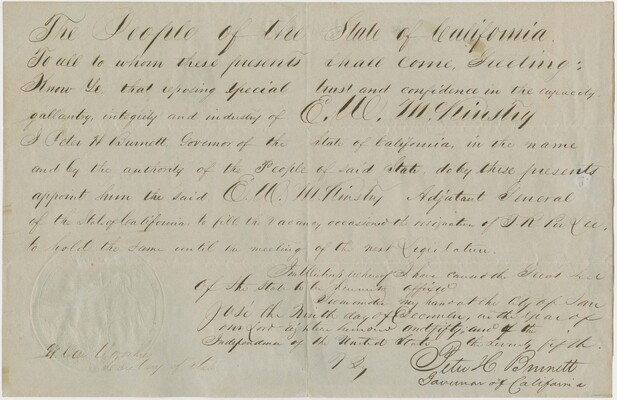 The People of the State of California.
To all to whom these presents shall come, Greeting:
Know Ye that reposing special trust and confidence in the capacity,
gallantry, integrity and industry of E. W. McKinstry
I Peter H Burnett, Governor of the State of California, in the name
and by the authority of the People of said State, do by these presents
appoint him the said E. W. McKinstry Adjutant General
of the State of California to fill the vacancy occasioned the resignation of T R Per Lee,
to hold the same until the meeting of the next Legislature.
In witness whereof I have caused the Great Seal
of the State to be hereunto affixed
Given under my hand at the City of San
José the day of December, in the Year of
our Lord eighteen hundred and fifty, and of the
Independence of the United States the seventy fifth.
Peter H Burnett
Governor of California
Secretary of State